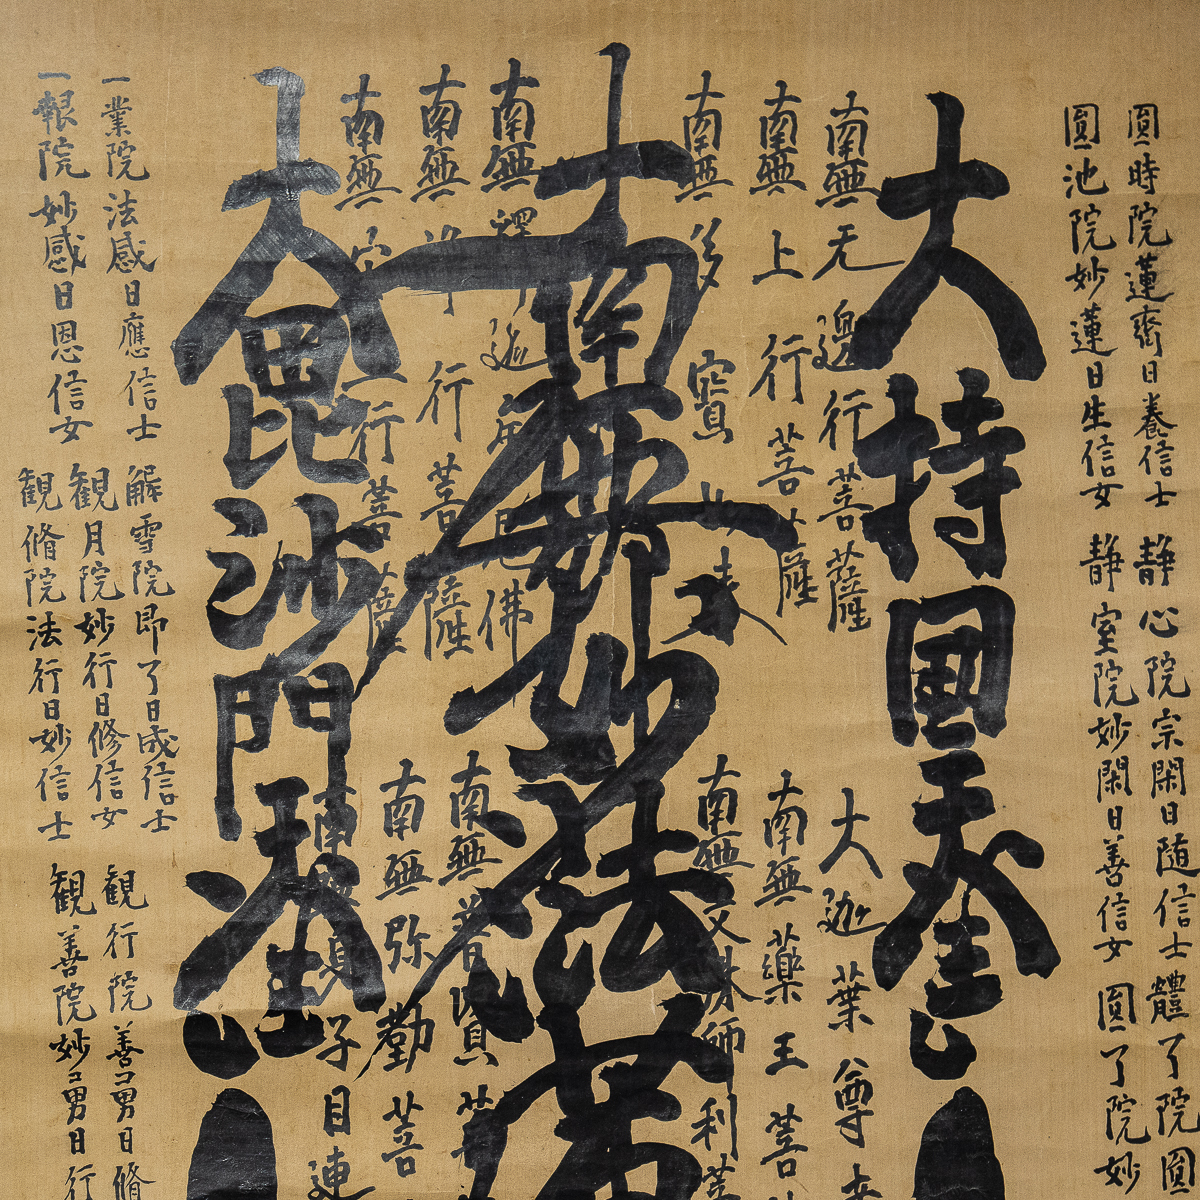 圓時院蓮斎日養信士
圓池院妙蓮日生信女
静心院宗閑日随信士
静室院妙閑日善信女
體了院圓
圓了院妙
大持國天王
南無无邊行菩薩
南無上行菩薩
南無多寳如来
南無妙法蓮
南無釋迦牟尼佛
南無浄行菩薩
南無安立行菩薩
大毘沙門天王
大迦葉尊者
南無藥王菩
南無文殊師利菩
南無普賢菩
南無弥勒菩
南無 身子目連
一業院法感日應信士
一報院妙感日恩信女
解雪院即了日成信士
観月院妙行日修信女
観脩院法行日妙信士
観行院善勇日脩
観善院妙勇日行